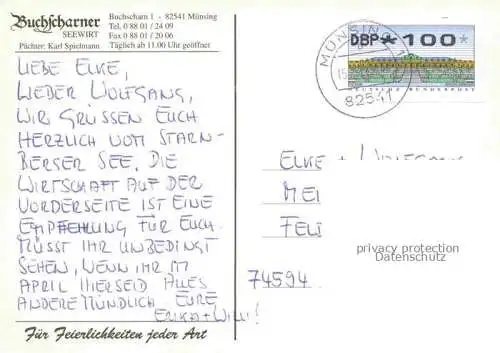 Buchscharner
SEEWIRT
Pächter: Karl Spielmann
Buchscharn 1 - 82541 Münsing
Tel. 0 88 01 / 24 09
Fax 0 88 01 / 20 06
Täglich ab 11.00 Uhr geöffnet
LIEBE ELKE,
LIEBER WOLFGANG,
WIR GRÜSSEN EUCH
HERZLICH VOM STARN-
BERGER SEE. DIE
WIRTSCHAFT AUF DER
VORDERSEITE IST EINE
EMPFEHLUNG FÜR EUCH.
MÜSST IHR UNBEDINGT
SEHEN, WENN IHR IM
APRIL HIER SEID. ALLES
ANDERE MÜNDLICH. EURE
ERIKA + WILLI!
Für Feierlichkeiten jeder Art
DBP * 100 *
DEUTSCHE BUNDESPOST
MÜNSING 1
82541
ELKE + WOLFGANG
MEI
FELI
privacy protection
Datenschutz
74594